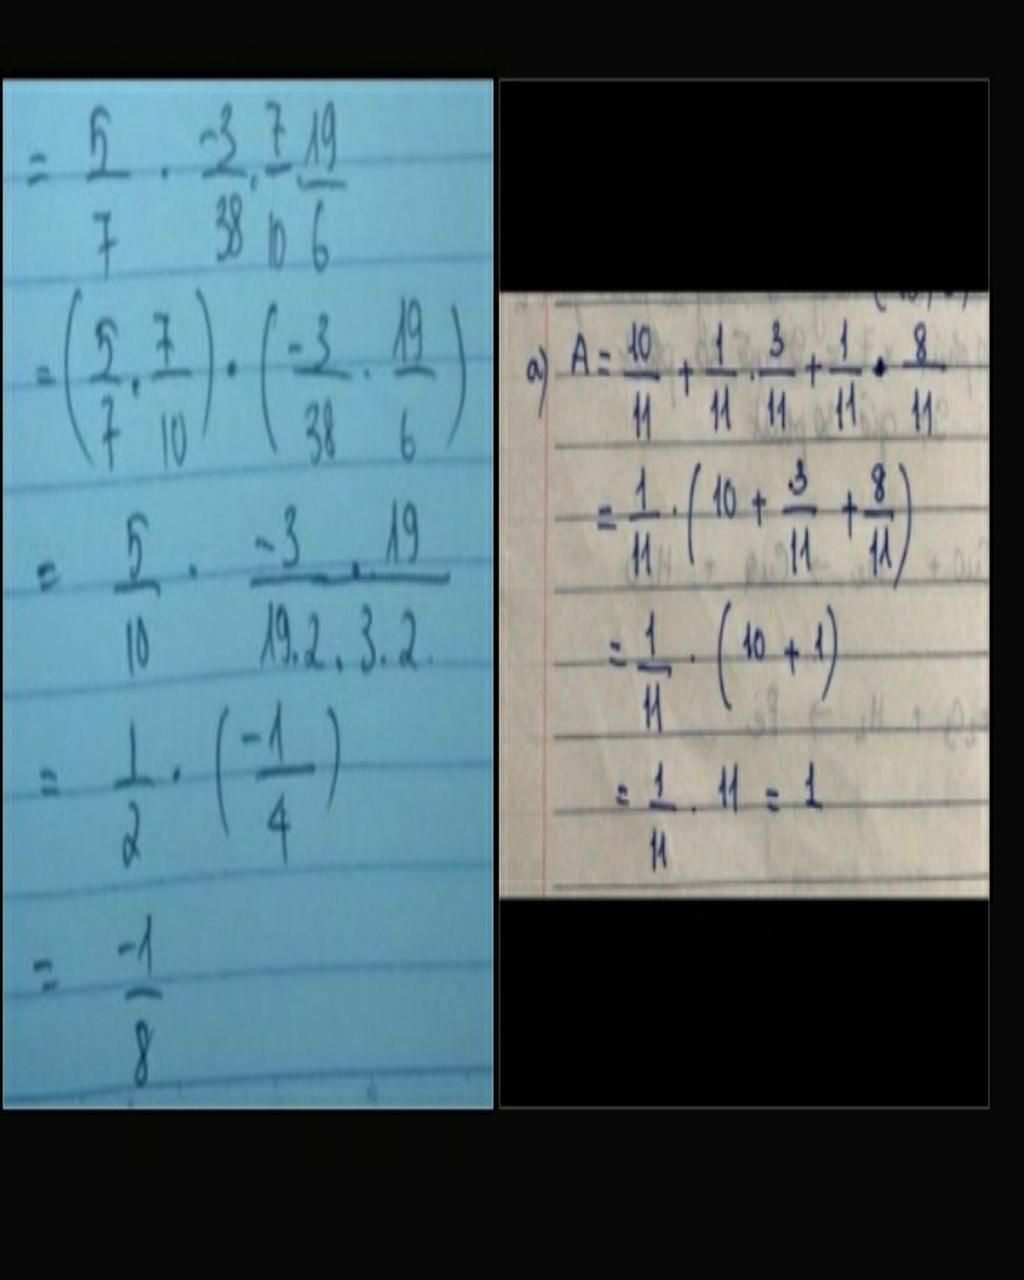 = 5/7 . -3/38 . 7/10 . 19/6
= (5/7 . 7/10) . (-3/38 . 19/6)
= 5/10 . -3 . 19/19.2.3.2
= 1/2 . (-1/4)
= -1/8
a) A = 10/11 + 1/11 . 3/11 + 1/11 . 8/11
= 1/11 . (10 + 3/11 + 8/11)
= 1/11 . (10 + 1)
= 1/11 . 11 = 1